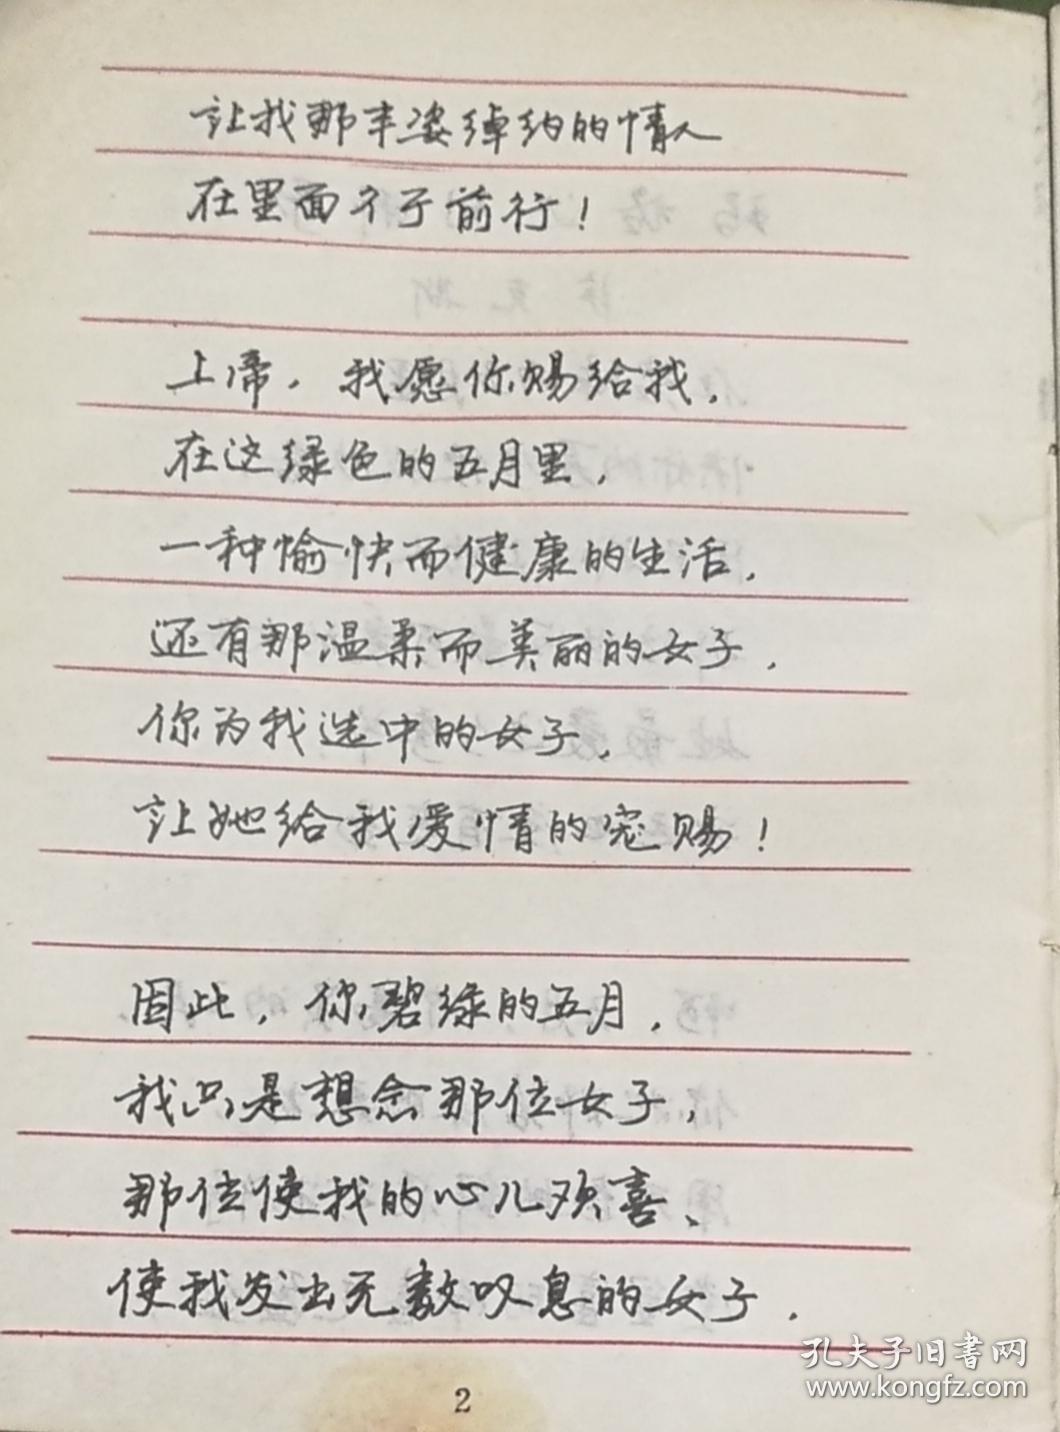 让我那丰姿绰约的情人
在里面彳亍前行！
上帝，我愿你赐给我，
在这绿色的五月里，
一种愉快而健康的生活，
还有那温柔而美丽的女子，
你为我选中的女子，
让她给我爱情的宠赐！
因此，你碧绿的五月，
我只是想念那位女子，
那位使我的心儿欢喜、
使我发出无数叹息的女子．
2
孔夫子旧书网
www.kongfz.com